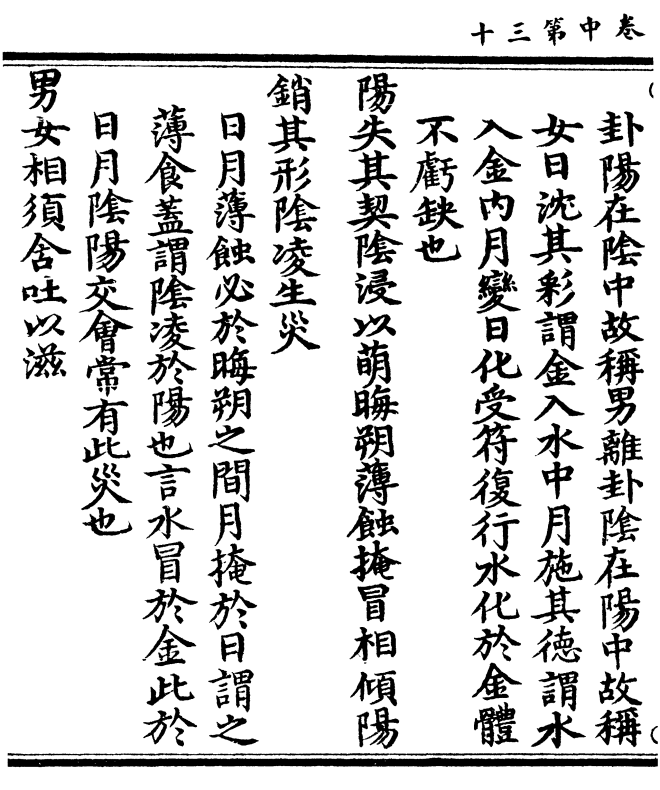 卷中第三十
卦陽在陰中故稱男離卦陰在陽中故稱
女日沈其彩謂金入水中月施其德謂水
入金內月變日化受符復行水化於金體
不虧缺也
陽失其契陰浸以萌晦朔薄蝕掩冒相傾陽
銷其形陰凌生災
日月薄蝕必於晦朔之間月掩於日謂之
薄食蓋謂陰凌於陽也言水冒於金此於
日月陰陽交會常有此災也
男女相須含吐以滋